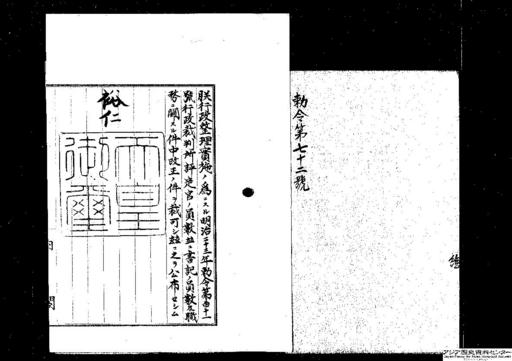 勅令第七十二號
朕行政整理實施ノ爲ニスル明治二十三年勅令第
號行政裁判所評定官ノ員數竝ニ書記ノ員數及職
務ニ關スル件中改正ノ件ヲ裁可シ玆ニ之ヲ公布セシム
裕仁
天皇
御璽
アジア歴史資料センター